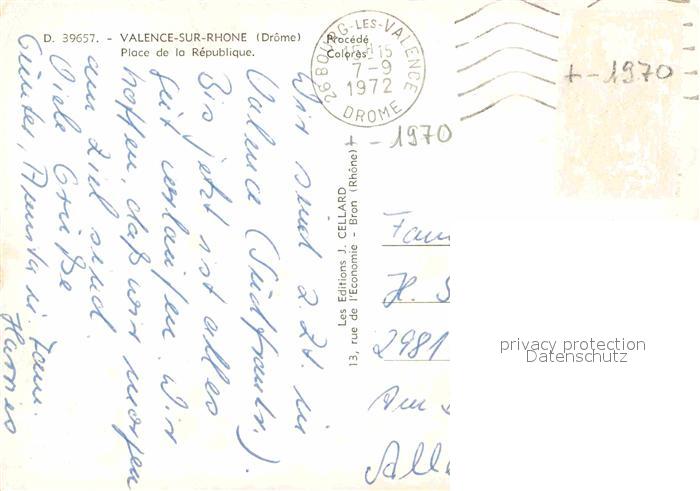 D. 39657. - VALENCE-SUR-RHONE (Drôme)
Place de la République.
Procédé
Colorès
26 BOURG-LES-VALENCE
15H15
7-9
1972
DROME
+-1970
+-1970
Wir sind z.Zt. in
Valence (Südfrankr.).
Bis jetzt ist alles
gut verlaufen. Wir
hoffen, daß wir morgen
am Ziel sind.
Viele Grüße
Günter, u. Fam.
Les Editions J. CELLARD
13, rue de l'Economie - Bron (Rhône)
Fam
H. S
2981
Am
All
privacy protection
Datenschutz